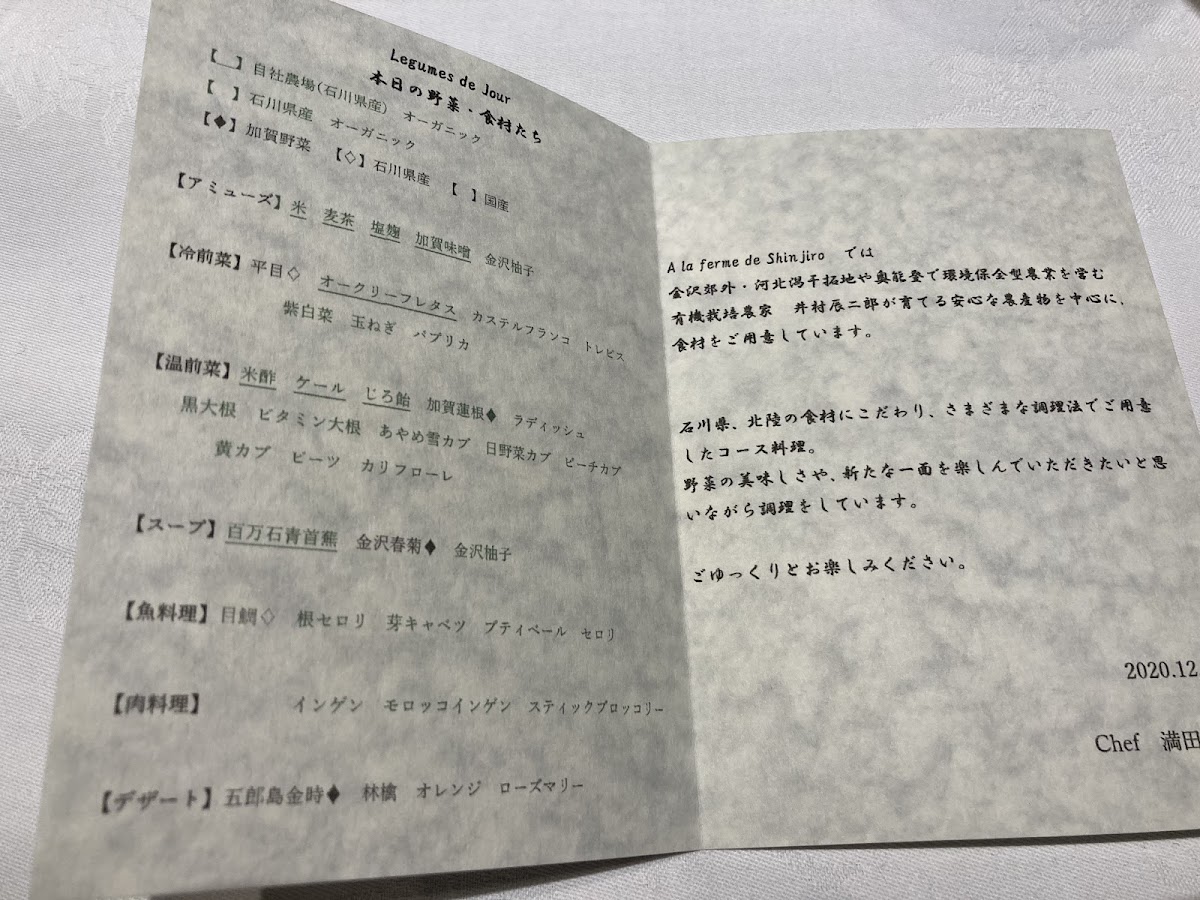 Legumes de Jour
本日の野菜・食材たち
【＿】自社農場(石川県産)　オーガニック
【　】石川県産　オーガニック
【◆】加賀野菜　【◇】石川県産　【　】国産
【アミューズ】米　麦茶　塩麹　加賀味噌　金沢柚子
【冷前菜】平目◇　オークリーフレタス　カステルフランコ　トレビス
紫白菜　玉ねぎ　パプリカ
【温前菜】米酢　ケール　じろ飴　加賀蓮根◆　ラディッシュ
黒大根　ビタミン大根　あやめ雪カブ　日野菜カブ　ピーチカブ
黄カブ　ビーツ　カリフローレ
【スープ】百万石青首蕪　金沢春菊◆　金沢柚子
【魚料理】目鯛◇　根セロリ　芽キャベツ　プティベール　セロリ
【肉料理】　インゲン　モロッコインゲン　スティックブロッコリー
【デザート】五郎島金時◆　林檎　オレンジ　ローズマリー
A la ferme de Shinjiro　では
金沢郊外・河北潟干拓地や奥能登で環境保全型農業を営む
有機栽培農家　井村辰二郎が育てる安心な農産物を中心に、
食材をご用意しています。
石川県、北陸の食材にこだわり、さまざまな調理法でご用意
したコース料理。
野菜の美味しさや、新たな一面を楽しんでいただきたいと思
いながら調理をしています。
ごゆっくりとお楽しみください。
2020.12
Chef　満田